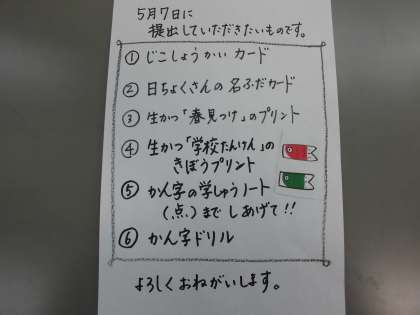 5月7日に
提出していただきたいものです。
① じこしょうかい カード
② 日ちょくさんの 名ふだカード
③ 生かつ「春見つけ」のプリント
④ 生かつ「学校たんけん」の
きぼうプリント
⑤ かん字の学しゅうノート
(点.)まで しあげて!!
⑥ かん字ドリル
よろしくおねがいします。